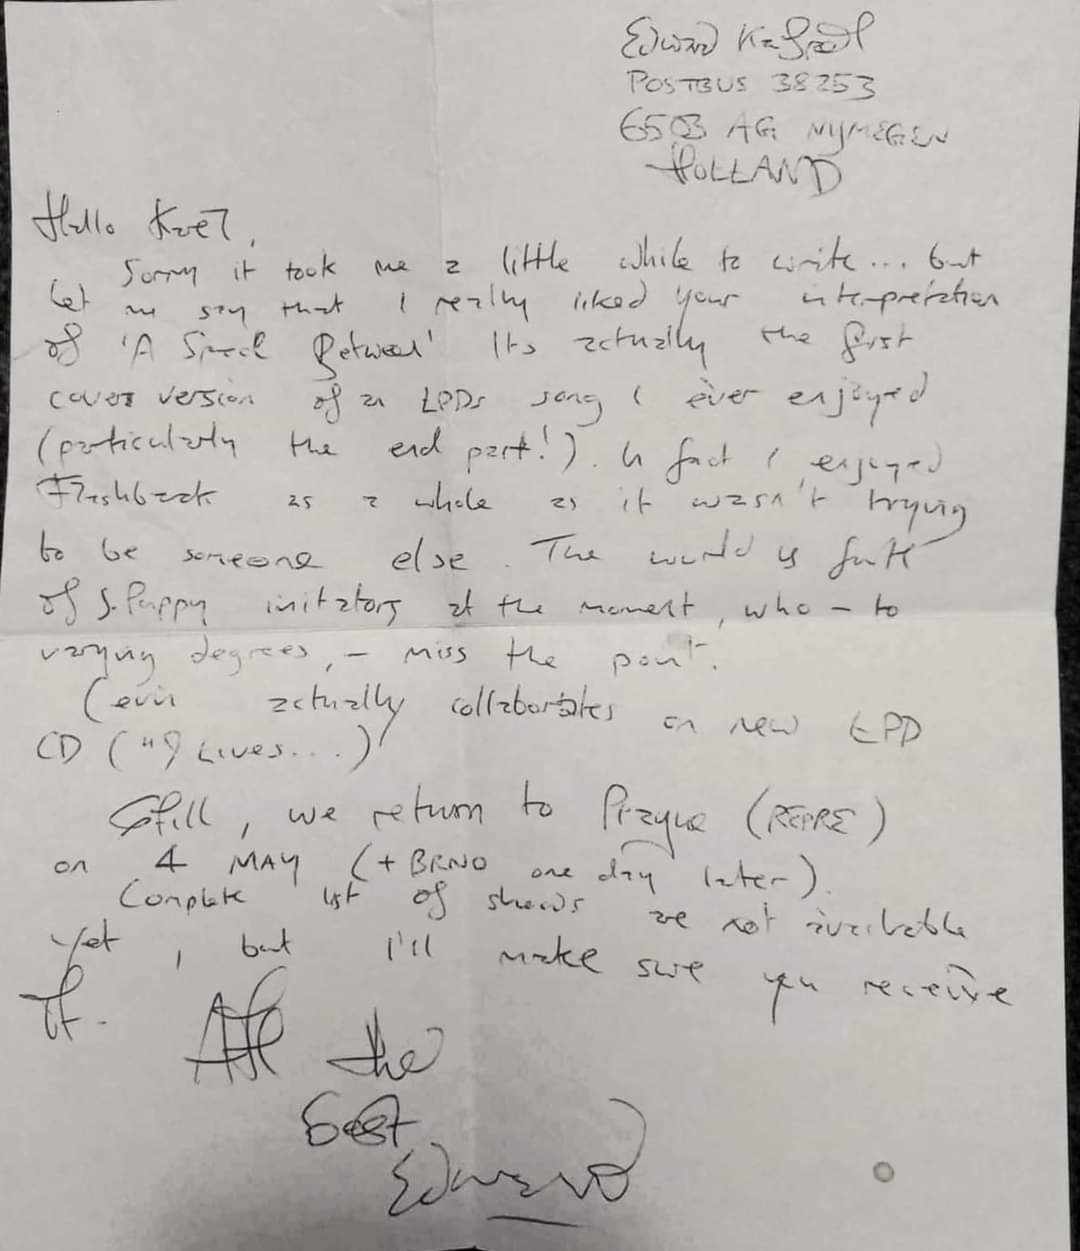 Edward Ka-Spel
POSTBUS 38253
6503 AG NYMEGEN
HOLLAND
Hello Karel,
Sorry it took me a little while to write... but
let me say that I really liked your interpretation
of 'A Space Between' Its actually the first
cover version of an LPDs song I ever enjoyed
(particularly the end part!). In fact I enjoyed
Flashback as a whole as it wasn't trying
to be someone else. The world is full
of S. Puppy imitators at the moment, who - to
varying degrees, - miss the point.
(cevin actually collaborates on new LPD
CD ("9 Lives...)
Still, we return to Prague (REPRE)
on 4 MAY (+ BRNO one day later).
Complete list of shows are not available
yet, but I'll make sure you receive
it.
All the
Best
Edward